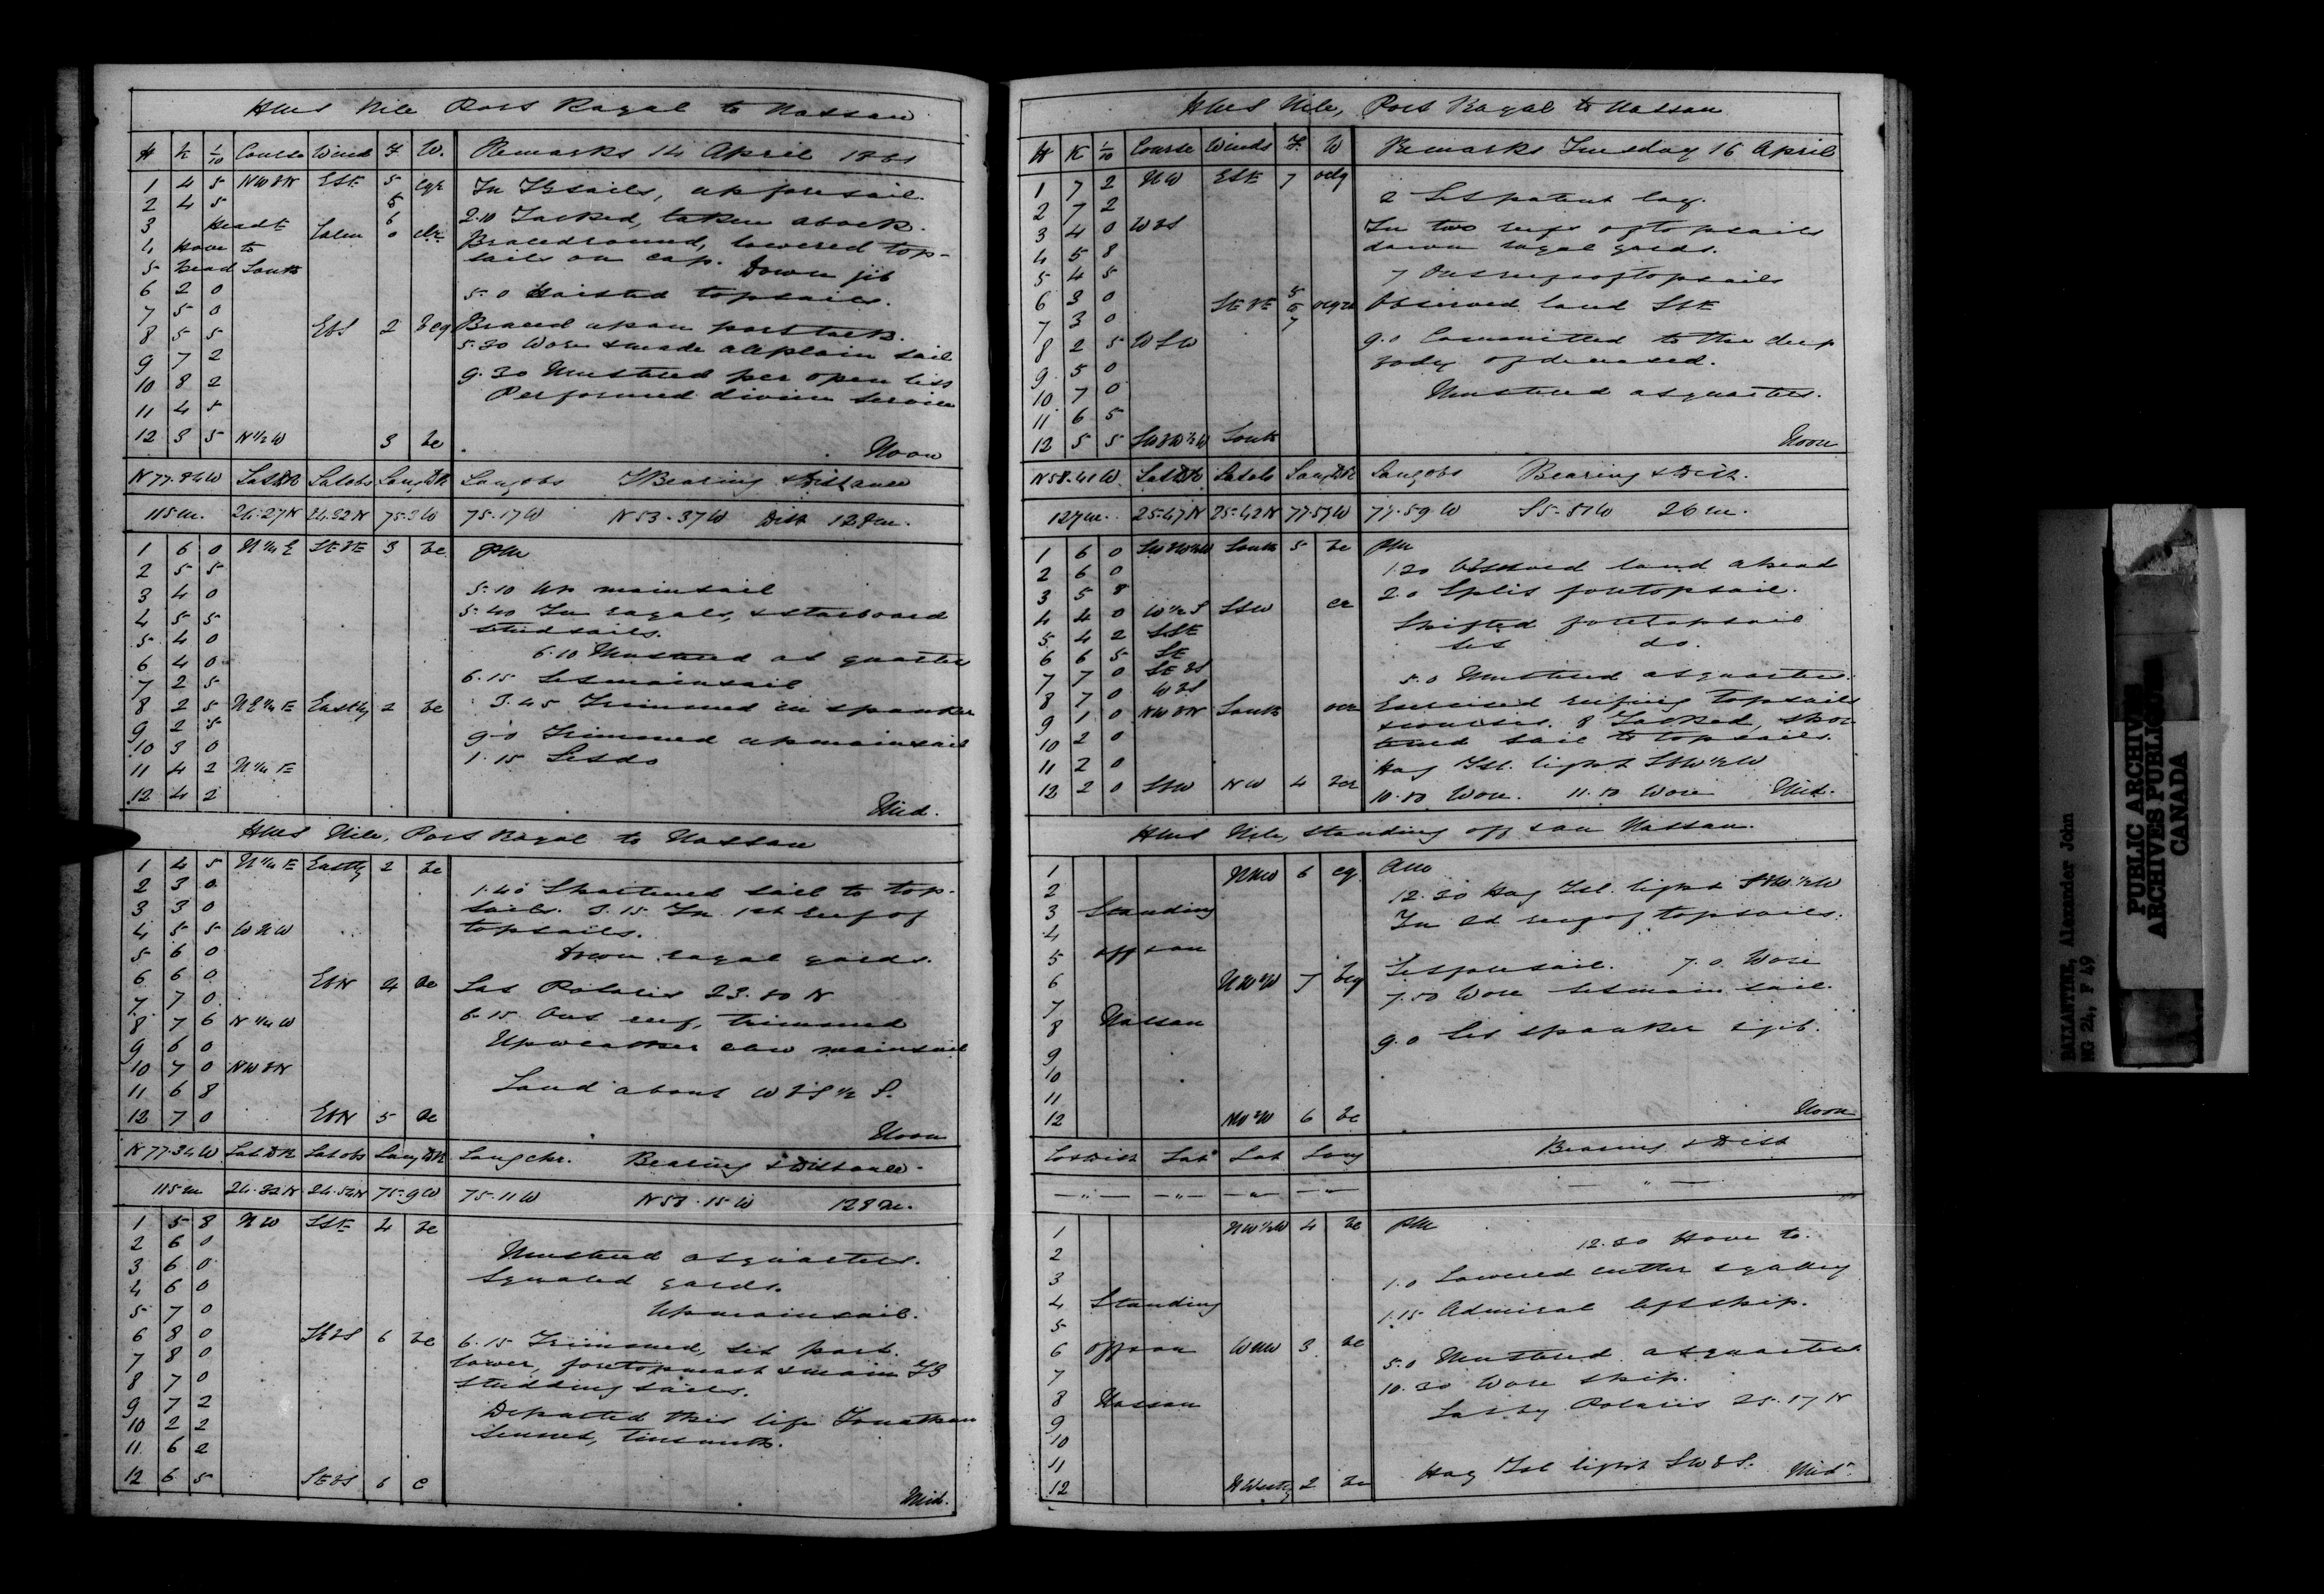 HMS Nile Port Royal to Nassau
H K 1/10 Course Wind F. W. Remarks 14 April 1861
1 4 5 NWbN ESE 5
In TGsails, up foresail
2 4 5 5
2.10 Tacked, taken aback.
3 Head E Calm 6
Braced round, lowered top-
4 Hove to 0
sails on cap. Down jib
5 head South
6 2 0 5.0 Hoisted topsails.
7 5 0
8 5 5 EbS 2 bcq Braced up on port tack.
5.30 Wore & made all plain sail
9 7 2
9.30 Mustered per open list
10 8 2
Performed divine service
11 4 5
12 3 5 N½W 3 bc Noon
N77.34W Lat DR Lat obs Long DR Long obs Bearing & Distance
115m. 24.27N 24.32N 75.3W 75.17W N53.37W Dist 128m.
1 6 0 N¼E SEbE 3 bc PM
2 5 5
3 4 0 5.10 Up mainsail
4 5 5 5.40 In royals, & starboard
studsails.
5 4 0
6 4 0 6.10 Mustered at quarters
7 2 5 6.15 Set mainsail
8 2 5 Easterly 2 bc 3.45 Trimmed in spanker
9 2 5
10 3 0 9.0 Trimmed up mainsail
11 4 2 N¼E 1.15 Set do
12 4 2 Mid.
HMS Nile, Port Royal to Nassau
1 4 5 N¼E Easterly 2 bc
2 3 0 1.40 Shortened sail to top-
3 3 0 sails. 3.15 In 1st reef of
4 5 5 WNW topsails.
5 6 0 Down royal yards.
6 6 0 EbN 4 bc Lat Polaris 23.50 N
7 7 0
8 7 6 N¼W 6.15 Out reef, trimmed
9 6 0 Up weather clew mainsail
10 7 0 NWbN
11 6 8 Land about WbS½S.
12 7 0 EbN 5 bc Noon
N77.34W Lat DR Lat obs Long DR Long chr. Bearing & Distance.
115m 24.32N 24.54N 75.9W 75.11W N58.15W 128m.
1 5 8 NW SSE 4 bc
2 6 0 Mustered at quarters.
3 6 0 Squared yards.
4 6 0
5 7 0 Up mainsail.
6 8 0 SEbS 6 bc 6.15 Trimmed, set port
7 8 0 lower, foretopmast & main TG
8 7 0 studding sails.
9 7 2 Departed this life Jonathan
10 2 2
11 6 2
12 6 5 SEbS 6 c Mid.
HMS Nile, Port Royal to Nassau
H K 1/10 Course Winds F. W Remarks Tuesday 16 April
1 7 2 NW ESE 7 ocq
2 7 2 2 Set patent log.
3 4 0 WbS In two reefs of topsails
4 5 8 down royal yards.
5 4 5 7 Out reefs of topsails
6 3 0 SEbE Observed land SSE
7 3 0
8 2 5 WSW 9.0 Committed to the deep
9 5 0 body of deceased.
10 7 0 Mustered at quarters.
11 6 5
12 5 5 SWbW½W South Noon
N58.41W Lat DR Lat obs Long DR Long obs Bearing & Dist.
127m. 25.47N 25.42N 77.57W 77.59W S5.51W 26m.
1 6 0 South 5 bc PM
2 6 0 1.20 Observed land ahead
3 5 8 2.0 Split foretopsail.
4 4 0 W½S SSW Shifted foretopsail
5 4 2 SSE Set do.
6 6 5 SE
7 7 0 SEbS 5.0 Mustered at quarters.
8 7 0 WbS Exercised reefing topsails
9 1 0 NWbN South 8 Tacked, shor-
10 2 0 tened sail to topsails.
11 2 0 Hog Isl. light SbW½W
12 2 0 SSW NW 4 10.50 Wore. 11.50 Wore Mid.
HMS Nile, standing off & on Nassau.
1 NNW 6 cq AM
2 12.30 Hog Isl. light SbW.½W
3 Standing In 2d reef of topsails.
4
5 off & on
6 NWbW 7 bcq Set foresail. 7.0. Wore
7 7.50 Wore Set main sail.
8 Nassau
9 9.0 Set spanker & jib.
10
11
12 NWbW 6 bc Noon
Co & Dist Lat Lat Long Bearing & Dist
— " — — " — — " — — " — — " —
1 NW½W 4 bc PM
2 12.30 Hove to.
3 1.0 Lowered cutter & galley
4 Standing 1.15 Admiral left ship.
5
6 off & on WNW 3 bc 5.0 Mustered at quarters
7 10.30 Wore ship.
8 Nassau Lat by Polaris 25.17 N
9
10
11 Hog Isl light SWbS. Mid.
12 NWesterly 2 bc
BALLANTYNE, Alexander John
MG 24, F 49
PUBLIC ARCHIVES
ARCHIVES PUBLIQUES
CANADA